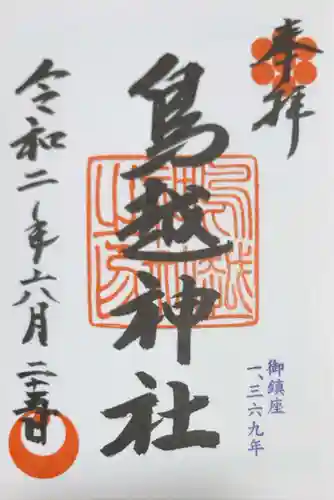 奉拝
鳥越神社
御鎮座
一、三六九年
令和二年六月二十五日